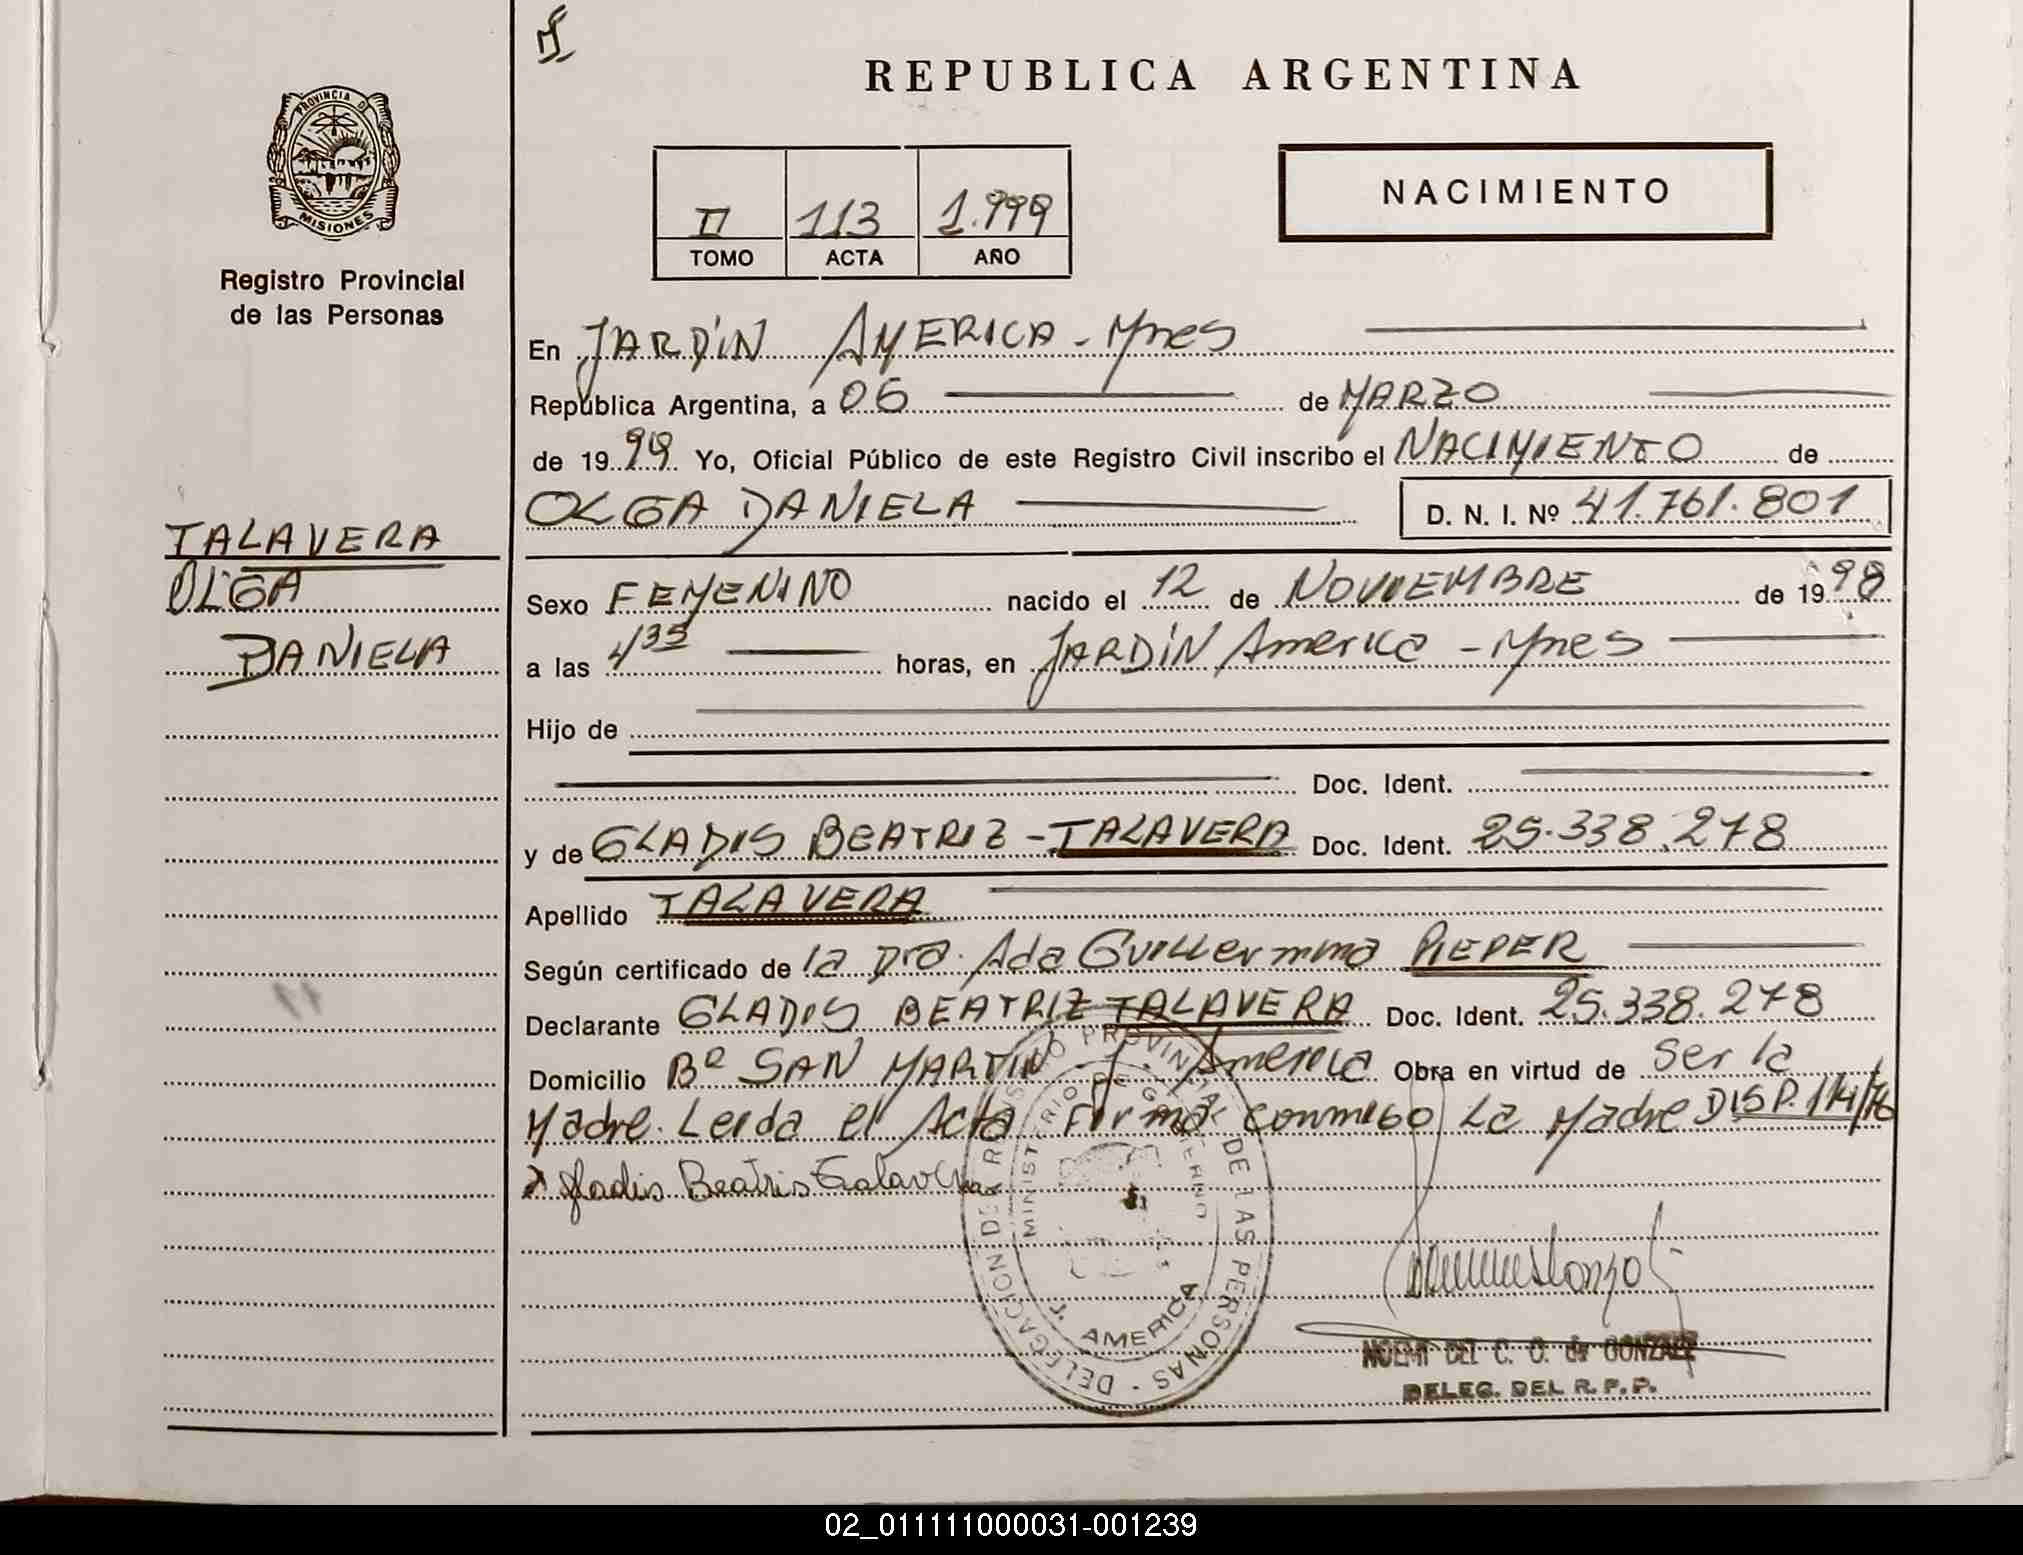 REPUBLICA ARGENTINA
PROVINCIA D
MISIONES
Registro Provincial
de las Personas
II 113 1.999
TOMO ACTA AÑO
NACIMIENTO
En JARDIN AMERICA - Mnes
República Argentina, a 06 de MARZO
de 1999 Yo, Oficial Público de este Registro Civil inscribo el NACIMIENTO de
OLGA DANIELA D. N. I. Nº 41.761.801
TALAVERA
OLGA
DANIELA
Sexo FEMENINO nacido el 12 de NOVIEMBRE de 1998
a las 4 35 horas, en JARDIN America - Mnes
Hijo de
Doc. Ident.
y de GLADIS BEATRIZ - TALAVERA Doc. Ident. 25.338.278
Apellido TALAVERA
Según certificado de la Dra. Ada Guillermina PIEPER
Declarante GLADIS BEATRIZ TALAVERA Doc. Ident. 25.338.278
Domicilio Bº SAN MARTIN J. America Obra en virtud de ser la
Madre. Leida el Acta Firma conmigo La Madre DISP. 114/76
Gladis Beatris Talavera
DELEGACION DE REGISTRO PROVINCIAL DE LAS PERSONAS
MINISTERIO DE GOBIERNO
J. AMERICA
NOEMI DEL C. O. de GONZALEZ
DELEG. DEL R. P. P.
02_011111000031-001239